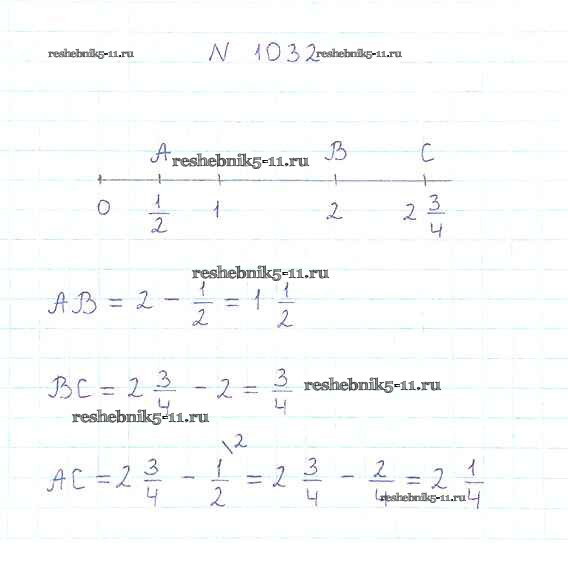 reshebnik5-11.ru N 1032 reshebnik5-11.ru
A reshebnik5-11.ru B C
0 1/2 1 2 2 3/4
reshebnik5-11.ru
AB = 2 - 1/2 = 1 1/2
BC = 2 3/4 - 2 = 3/4 reshebnik5-11.ru
reshebnik5-11.ru
AC = 2 3/4 - 1/2 \2 = 2 3/4 - 2/4 = 2 1/4
reshebnik5-11.ru